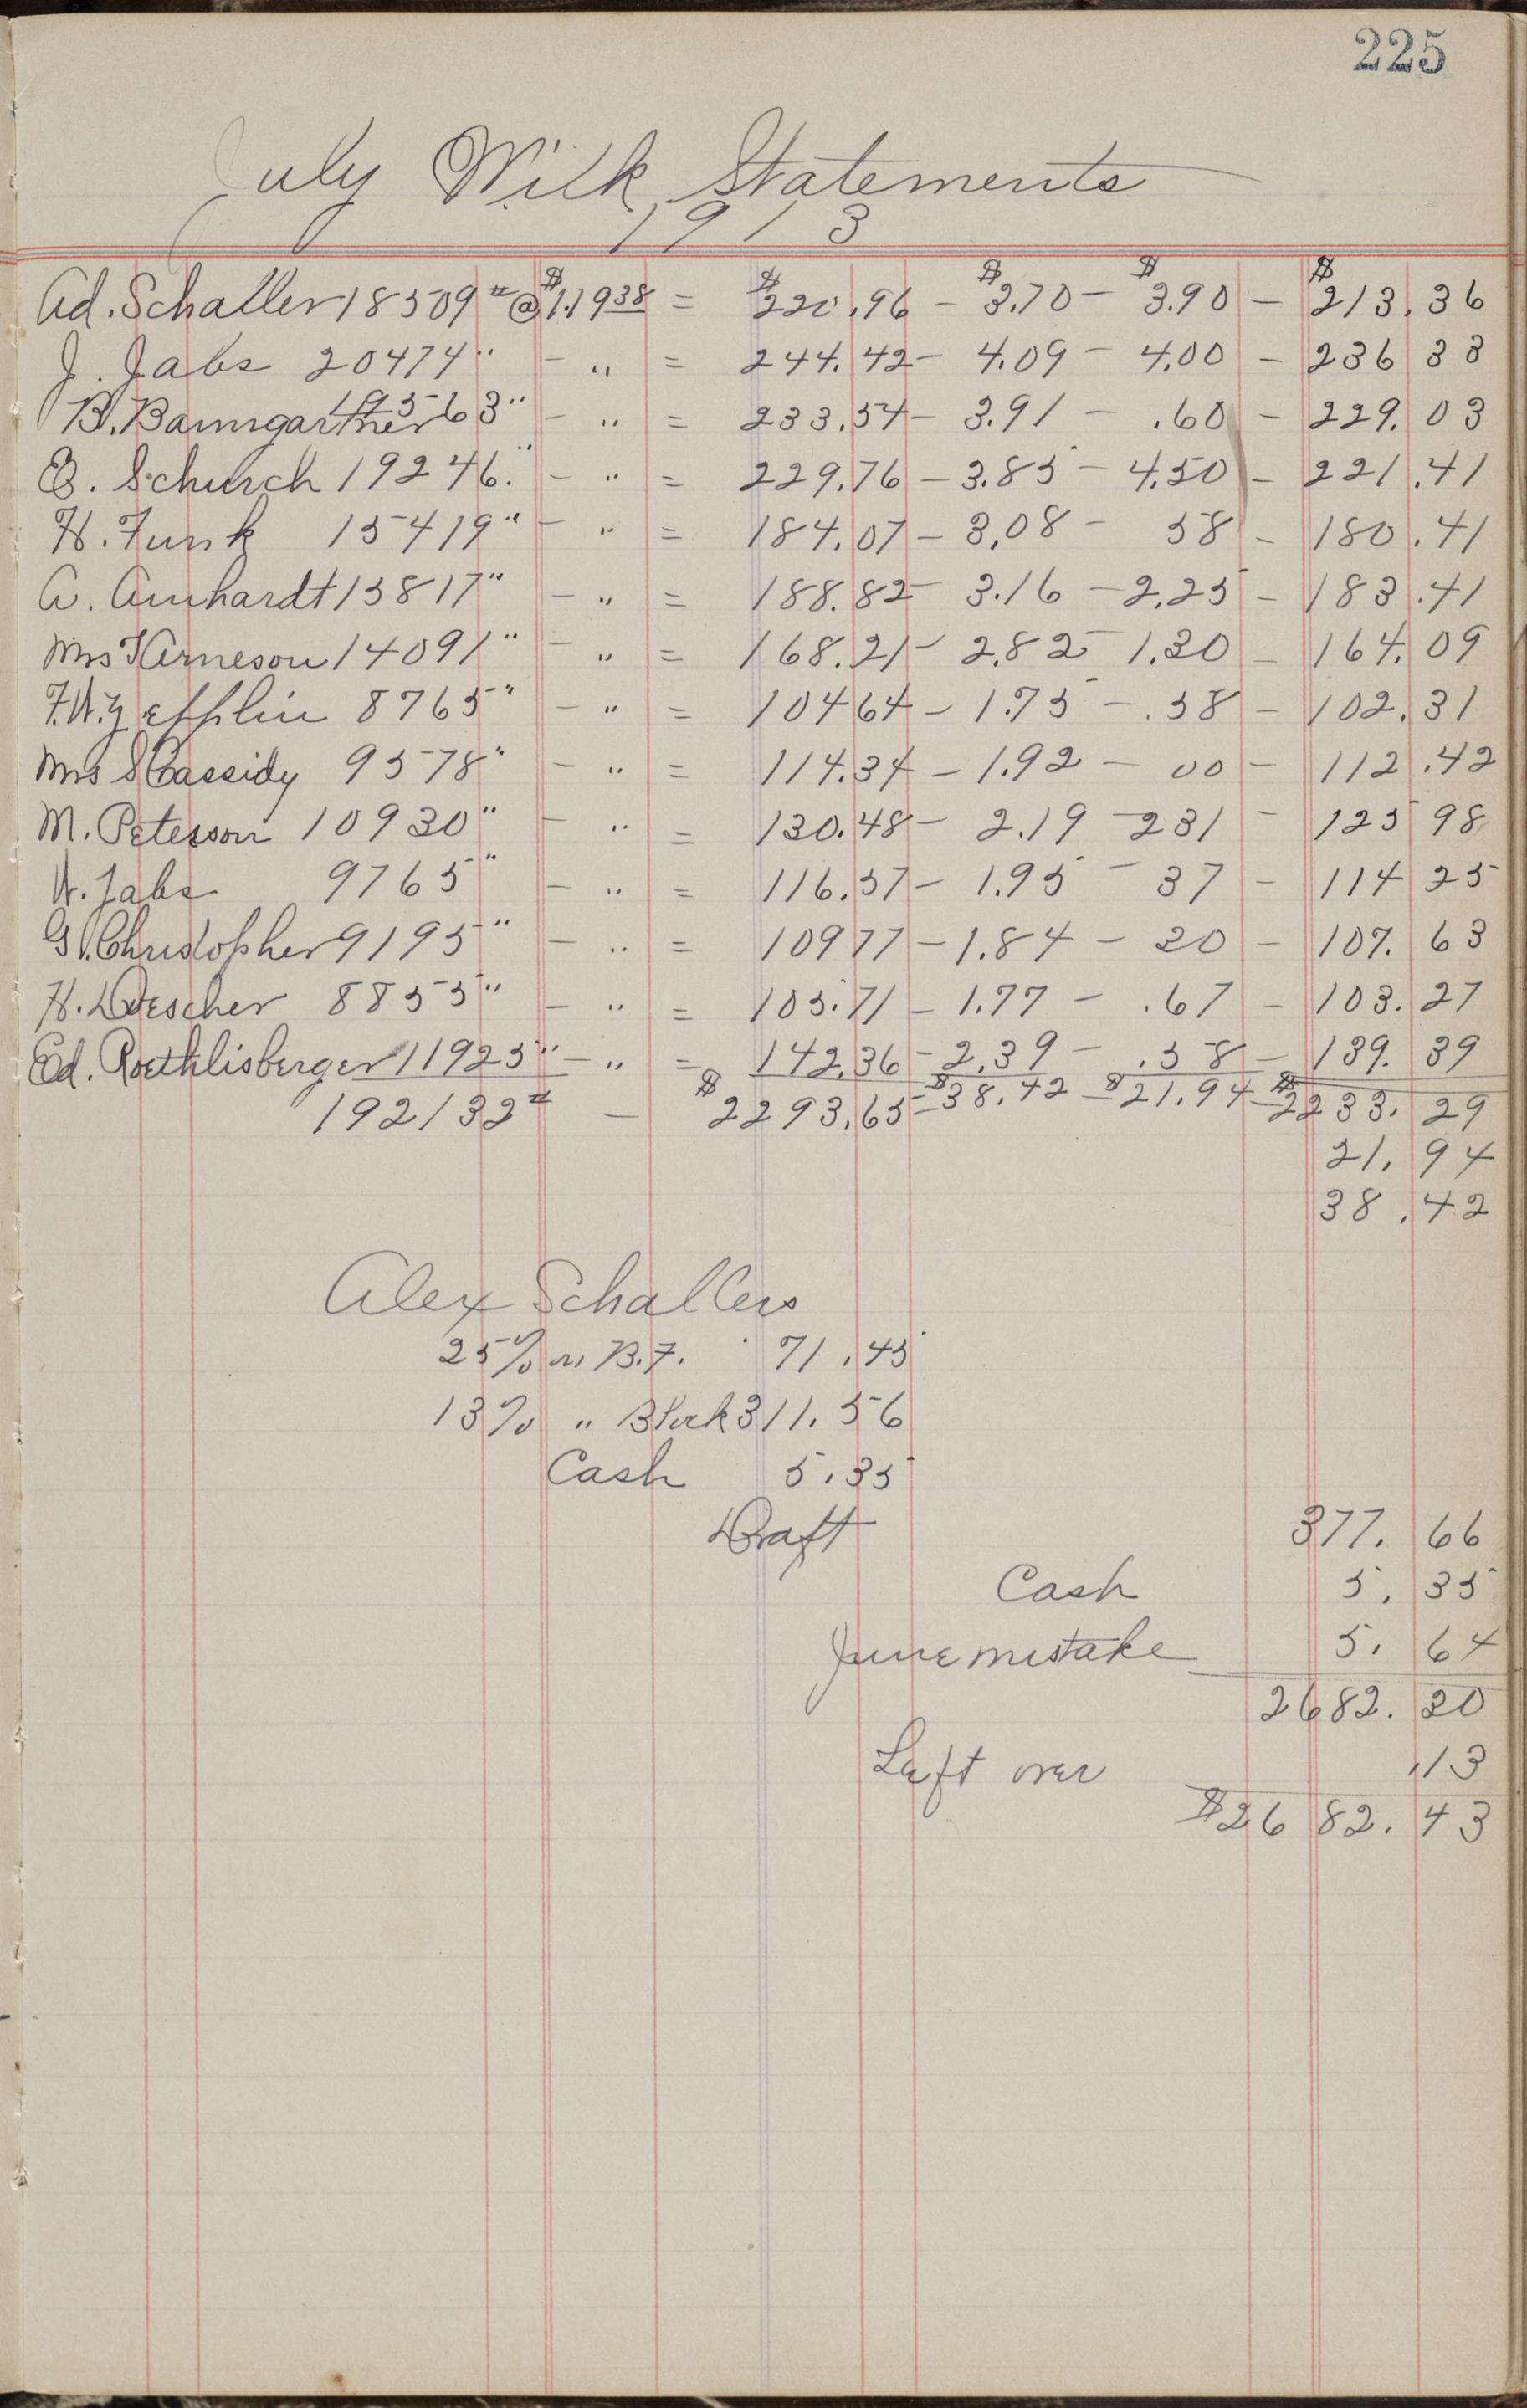 225
July Milk Statements
1913
Ad. Schaller 18509 # @ $1.1938 = $220.96 - $3.70 - $3.90 - $213.36
J. Jabs 20474 " - " = 244.42 - 4.09 - 4.00 - 236 33
B. Baumgartner 19563 " - " = 233.54 - 3.91 - .60 - 229.03
E. Schurch 19246. " - " = 229.76 - 3.85 - 4.50 - 221.41
H. Funk 15419 " - " = 184.07 - 3.08 - 58 - 180.41
A. Amhardt 15817 " - " = 188.82 - 3.16 - 2.25 - 183.41
Mrs K Arneson 14091 " - " = 168.21 - 2.82 - 1.30 - 164.09
F.W. Zefflin 8765 " - " = 104 64 - 1.75 - .58 - 102.31
Mrs S Cassidy 9578 " - " = 114.34 - 1.92 - 00 - 112.42
M. Peterson 10930 " - " = 130.48 - 2.19 - 231 - 125 98
W. Jabs 9765 " - " = 116.57 - 1.95 - 37 - 114 25
G. Christopher 9195 " - " = 109 77 - 1.84 - 30 - 107.63
H. Doescher 8855 " - " = 105.71 - 1.77 - .67 - 103.27
Ed. Roethlisberger 11925 " - " = 142.36 - 2.39 - .58 - 139.39
192132 # - $2293.65 = $38.42 - $21.94 - $2233.29
21.94
38.42
Alex Schallers
25% on B.F. 71.45
13% " Block 311.56
Cash 5.35
Draft 377.66
Cash 5.35
June mistake 5.64
2682.30
Left over .13
$2682.43